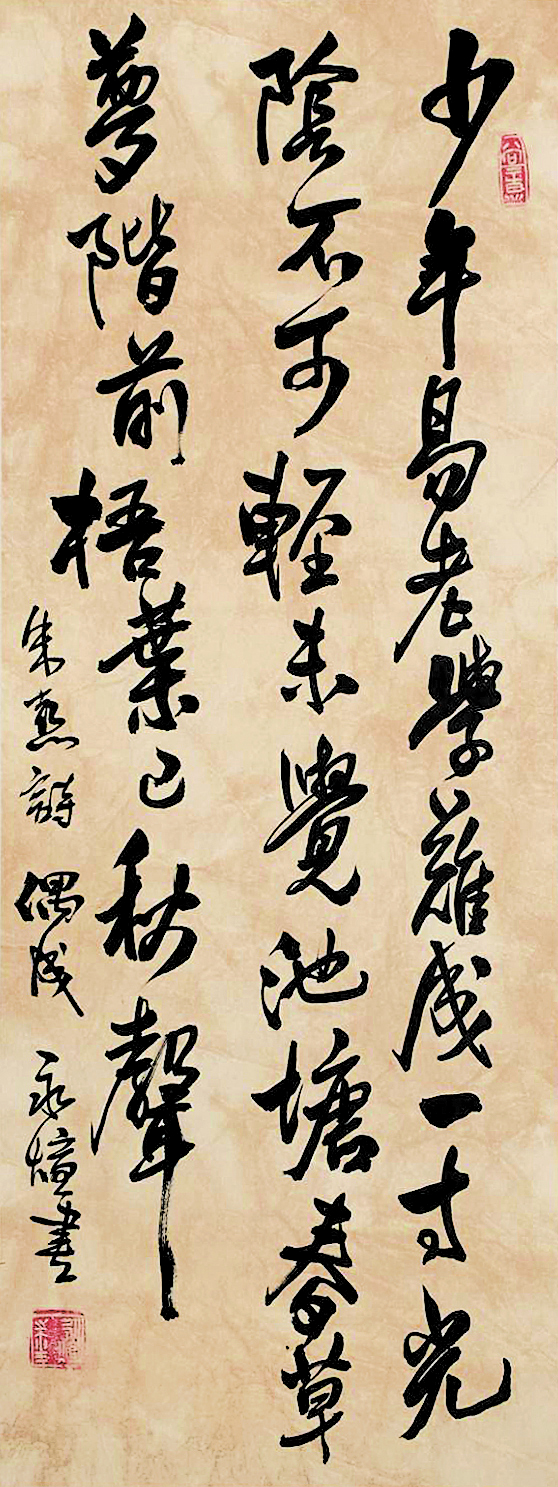 少年易老學難成一寸光
陰不可輕未覺池塘春草
夢階前梧葉已秋聲
朱熹詩 偶成 永𪹚書